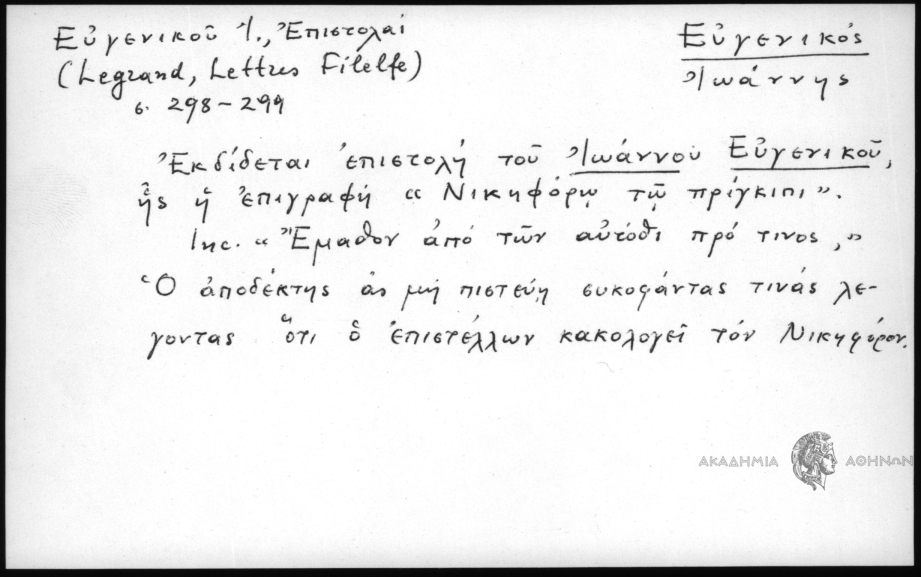 Εὐγενικοῦ Ἰ., Ἐπιστολαί
(Legrand, Lettres Filelfe)
σ. 298-299
Εὐγενικός
Ἰωάννης
Ἐκδίδεται ἐπιστολή τοῦ Ἰωάννου Εὐγενικοῦ,
ἧς ἡ ἐπιγραφή «Νικηφόρῳ τῷ πρίγκιπι».
Inc. «Ἔμαθον ἀπό τῶν αὐτόθι πρό τινος,»
Ὁ ἀποδέκτης ἄς μή πιστεύῃ συκοφάντας τινάς λέ-
γοντας ὅτι ὁ ἐπιστέλλων κακολογεῖ τόν Νικηφόρον.
ΑΚΑΔΗΜΙΑ ΑΘΗΝΩΝ